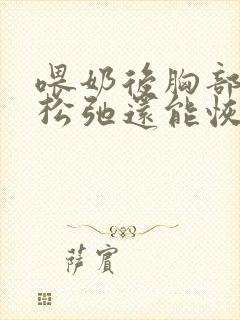 喂奶後胸部
松弛還能恢
薩賓